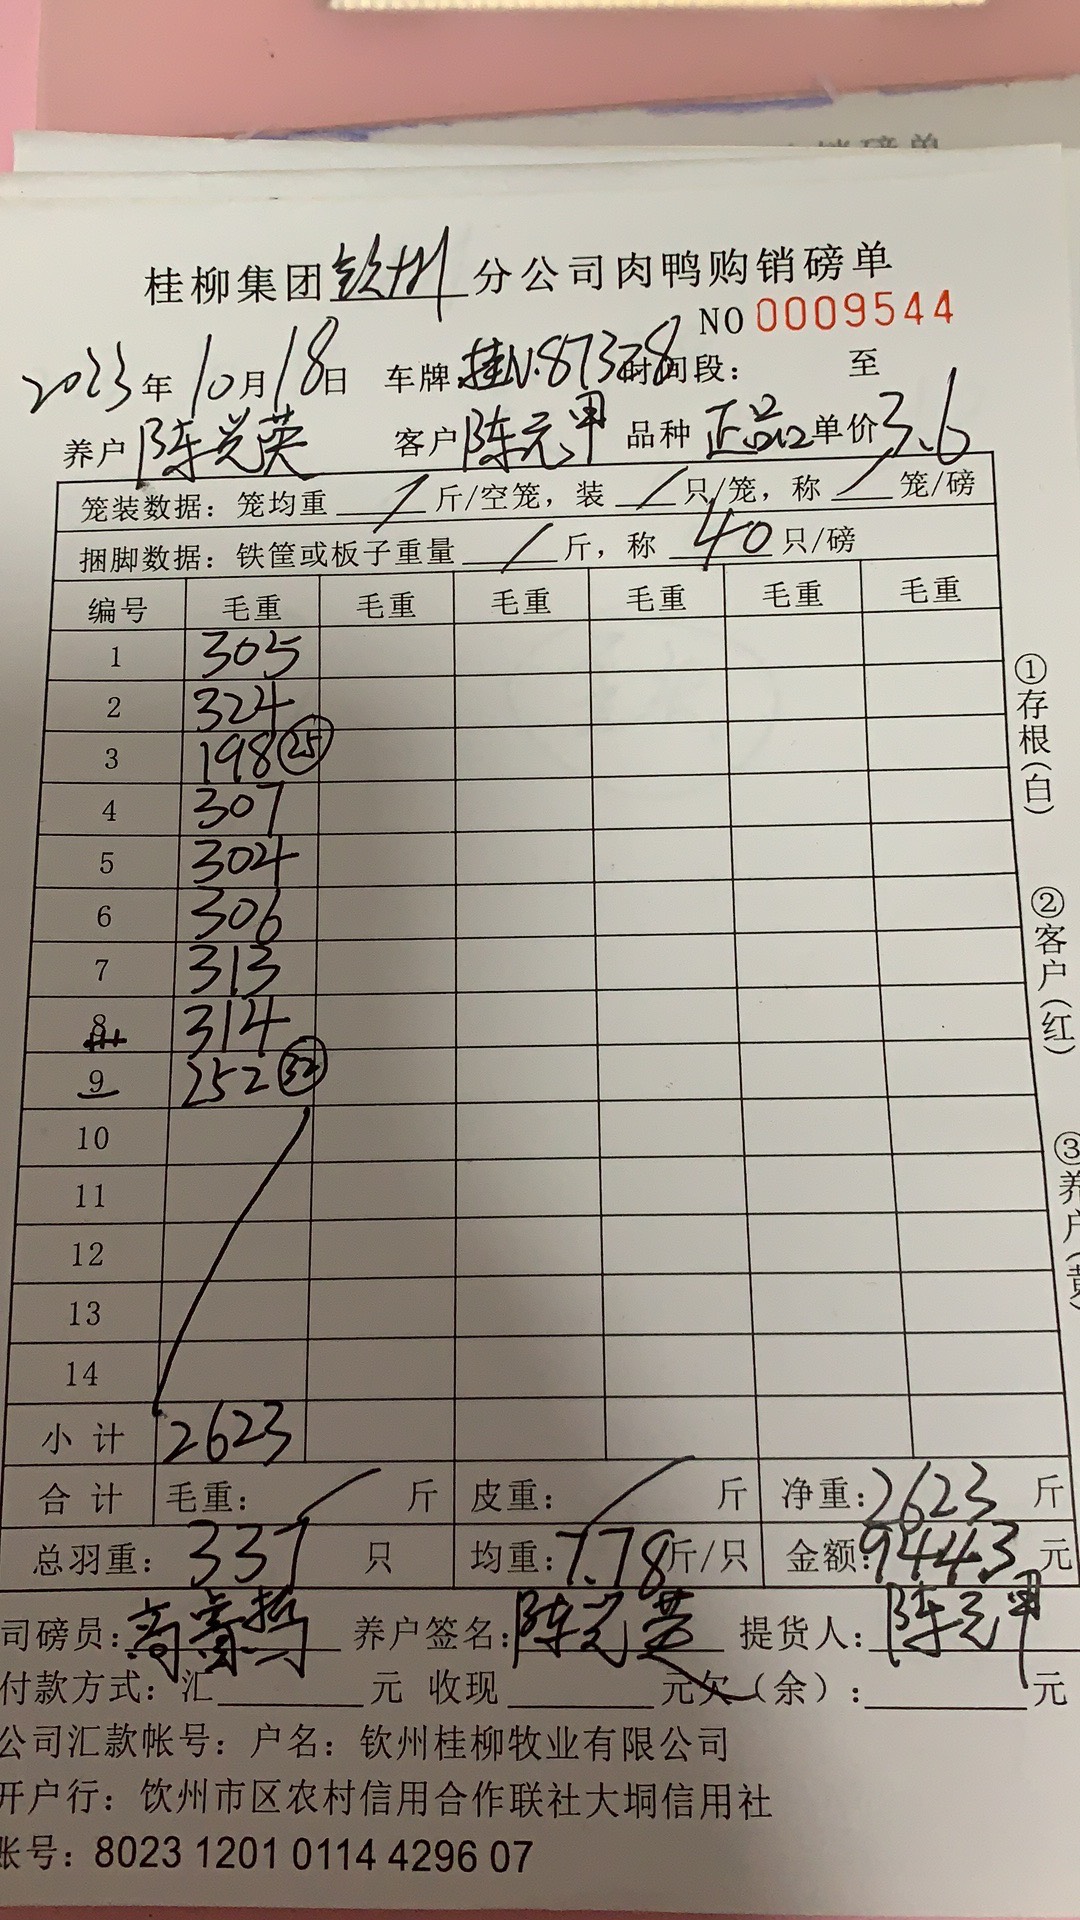 桂柳集团钦州分公司肉鸭购销磅单
NO 0009544
2023年10月18日 车牌:桂N.87378时间段: 至
养户陈兴英 客户陈元甲 品种正品 单价3.6
笼装数据:笼均重/斤/空笼,装/只/笼,称/笼/磅
捆脚数据:铁筐或板子重量/斤,称40只/磅
编号 毛重 毛重 毛重 毛重 毛重 毛重
1 305
2 324
3 198 25
4 307
5 304
6 306
7 313
8 314
9 252 32
10
11
12
13
14
小计 2623
合计 毛重:/斤 皮重:/斤 净重:2623斤
总羽重:337只 均重:7.78斤/只 金额:9443元
司磅员: 养户签名:陈兴英 提货人:陈元甲
付款方式:汇 元 收现 元欠(余): 元
公司汇款帐号:户名:钦州桂柳牧业有限公司
开户行:饮州市区农村信用合作联社大垌信用社
账号:8023 1201 0114 4296 07
①存根(白)
②客户(红)
③养户(黄)